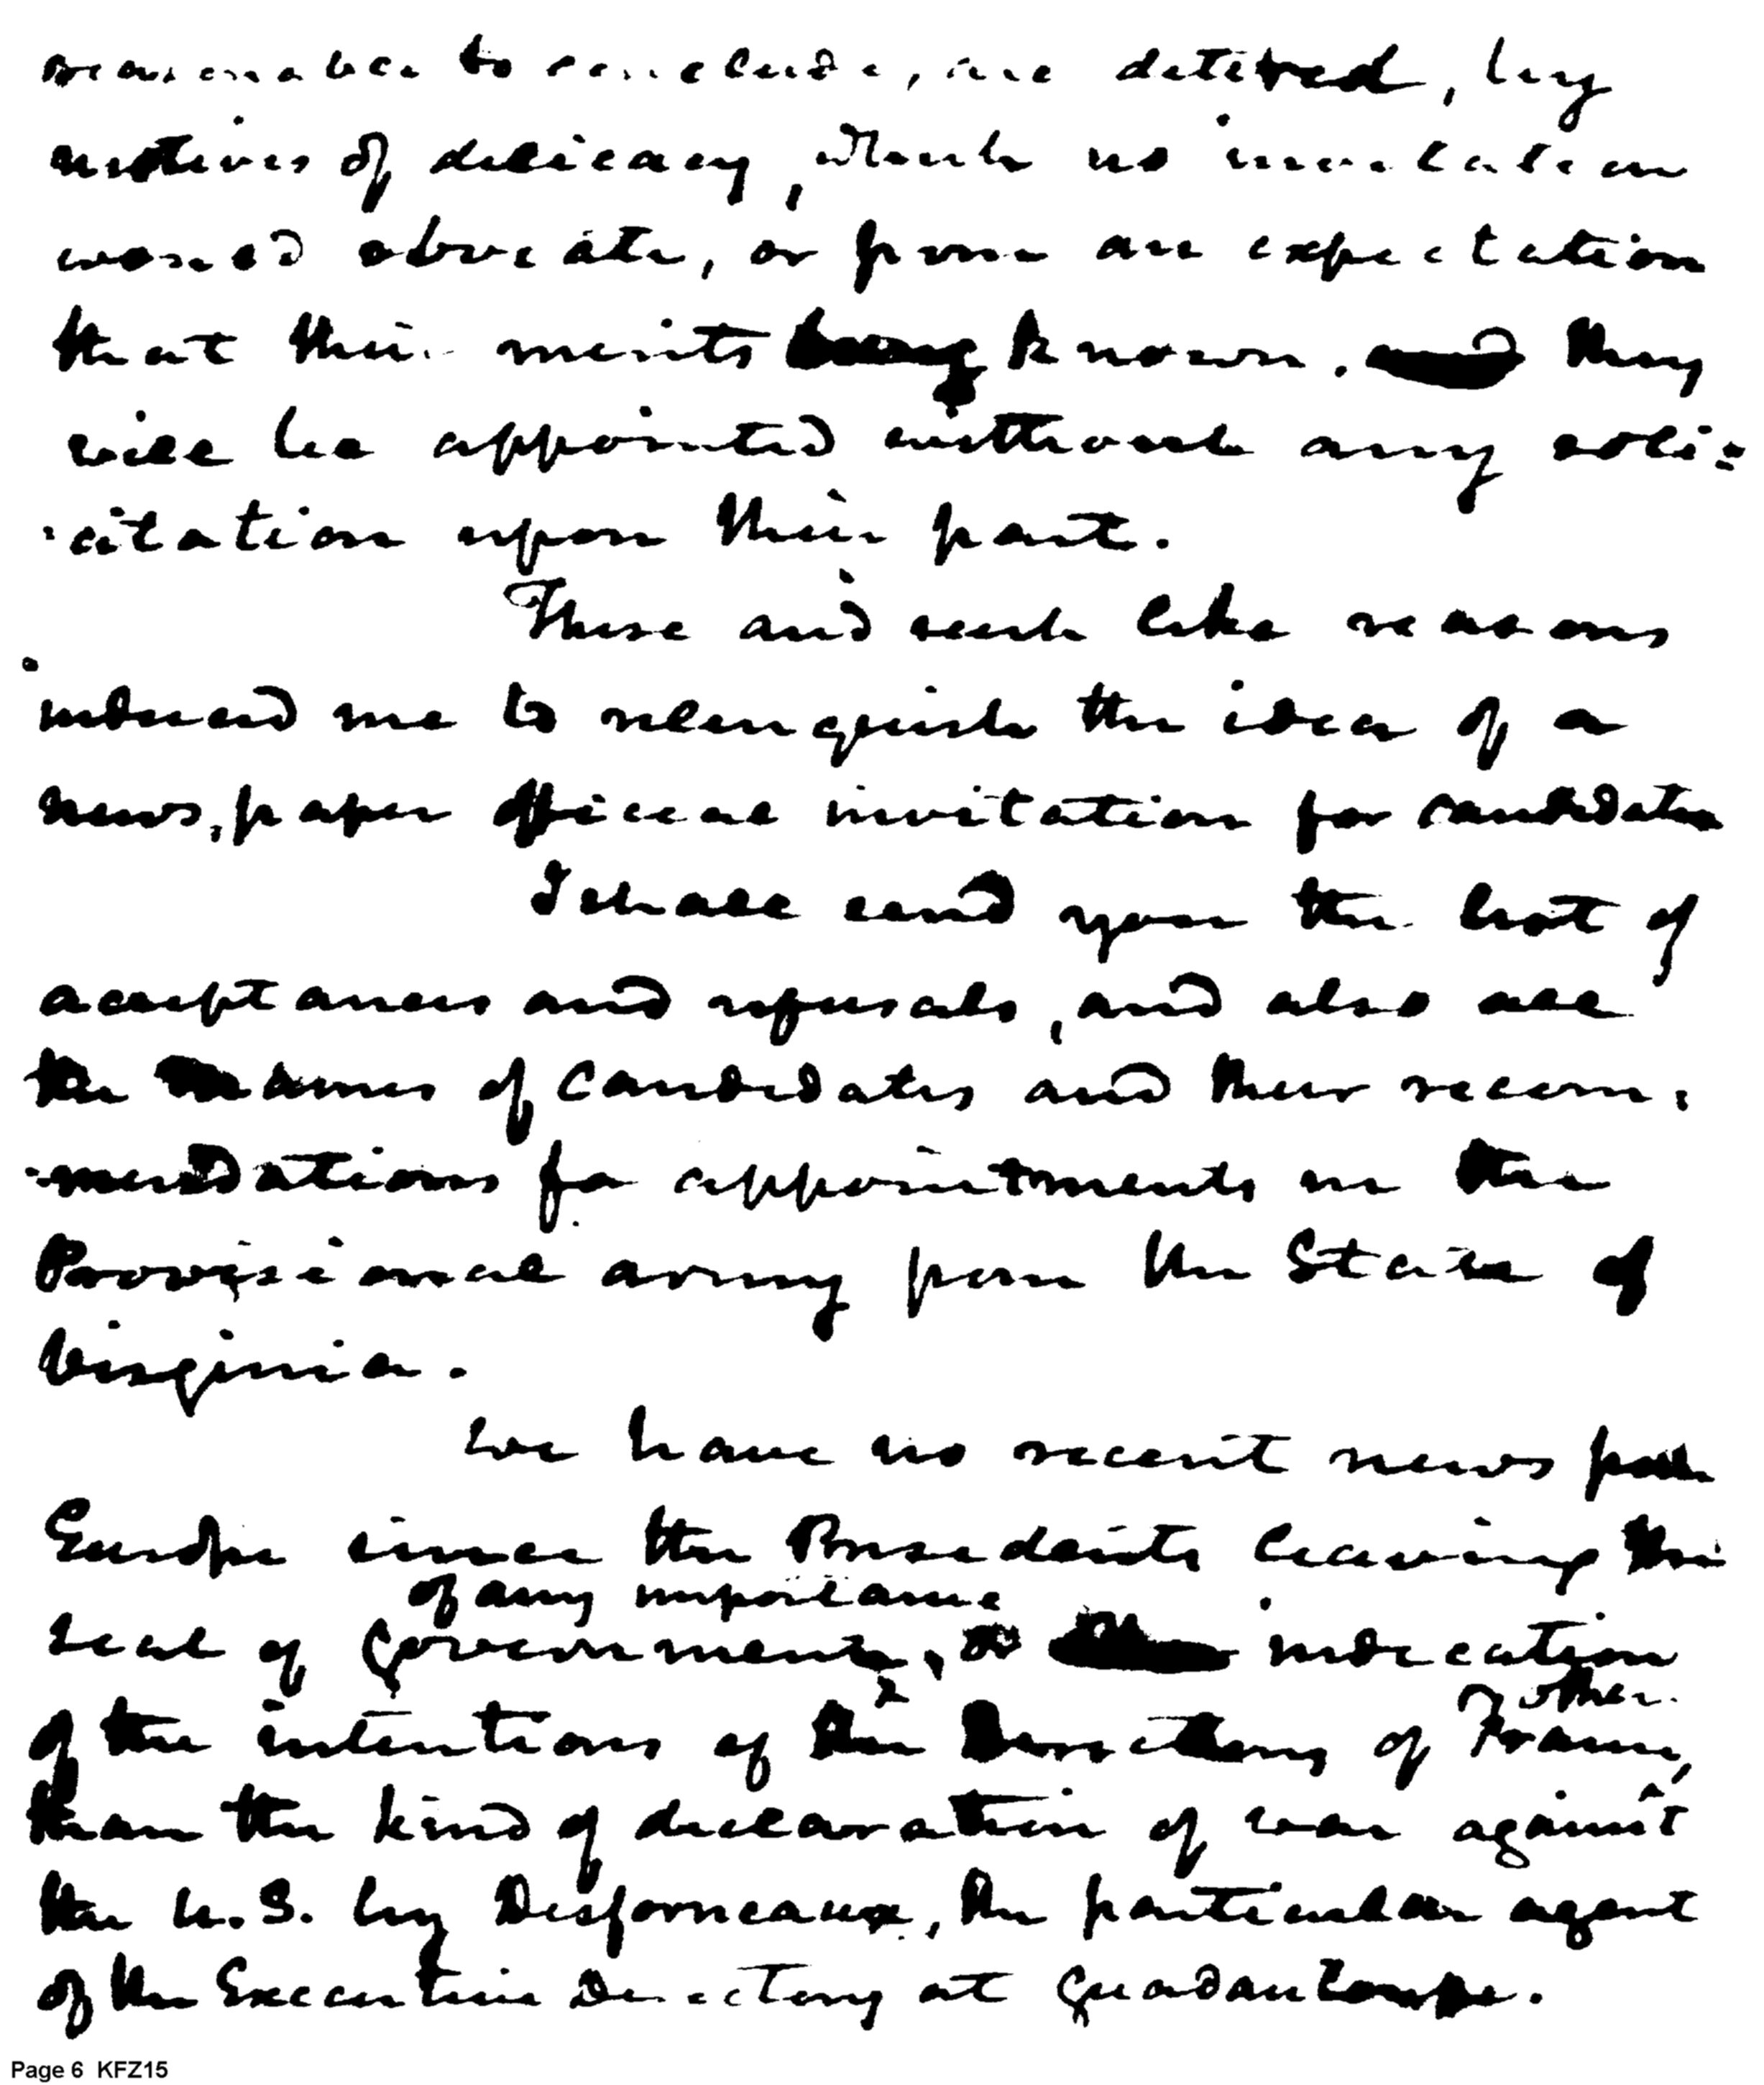 reasonable to conclude, are deterred, by
motives of delicacy, which no invitation
would obviate, or from an expectation
that their merits being known. and they
will be appointed without any soli=
:citation upon their part.
These and such like reasons
induced me to relinquish the idea of a
news,paper official invitation for candidates
I shall send you the list of
acceptances and refusals, and also all
the names of Candidates and their recom:
:mendations for appointments in the
Provisional army from the State of
Virginia.
We have no recent news from
Europe since the Presidents leaving the
of any importance
seat of Government, or indication
other
of the intentions of the Directory of France,
than the kind of declaration of war against
the U.S. by Desforneaux, the particular agent
of the Executive Directory at Guadauloupe.